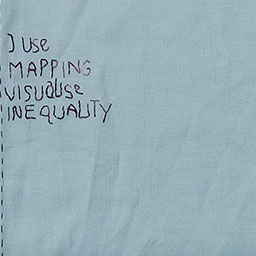 I USE
MAPPING
VISUALISE
INEQUALITY